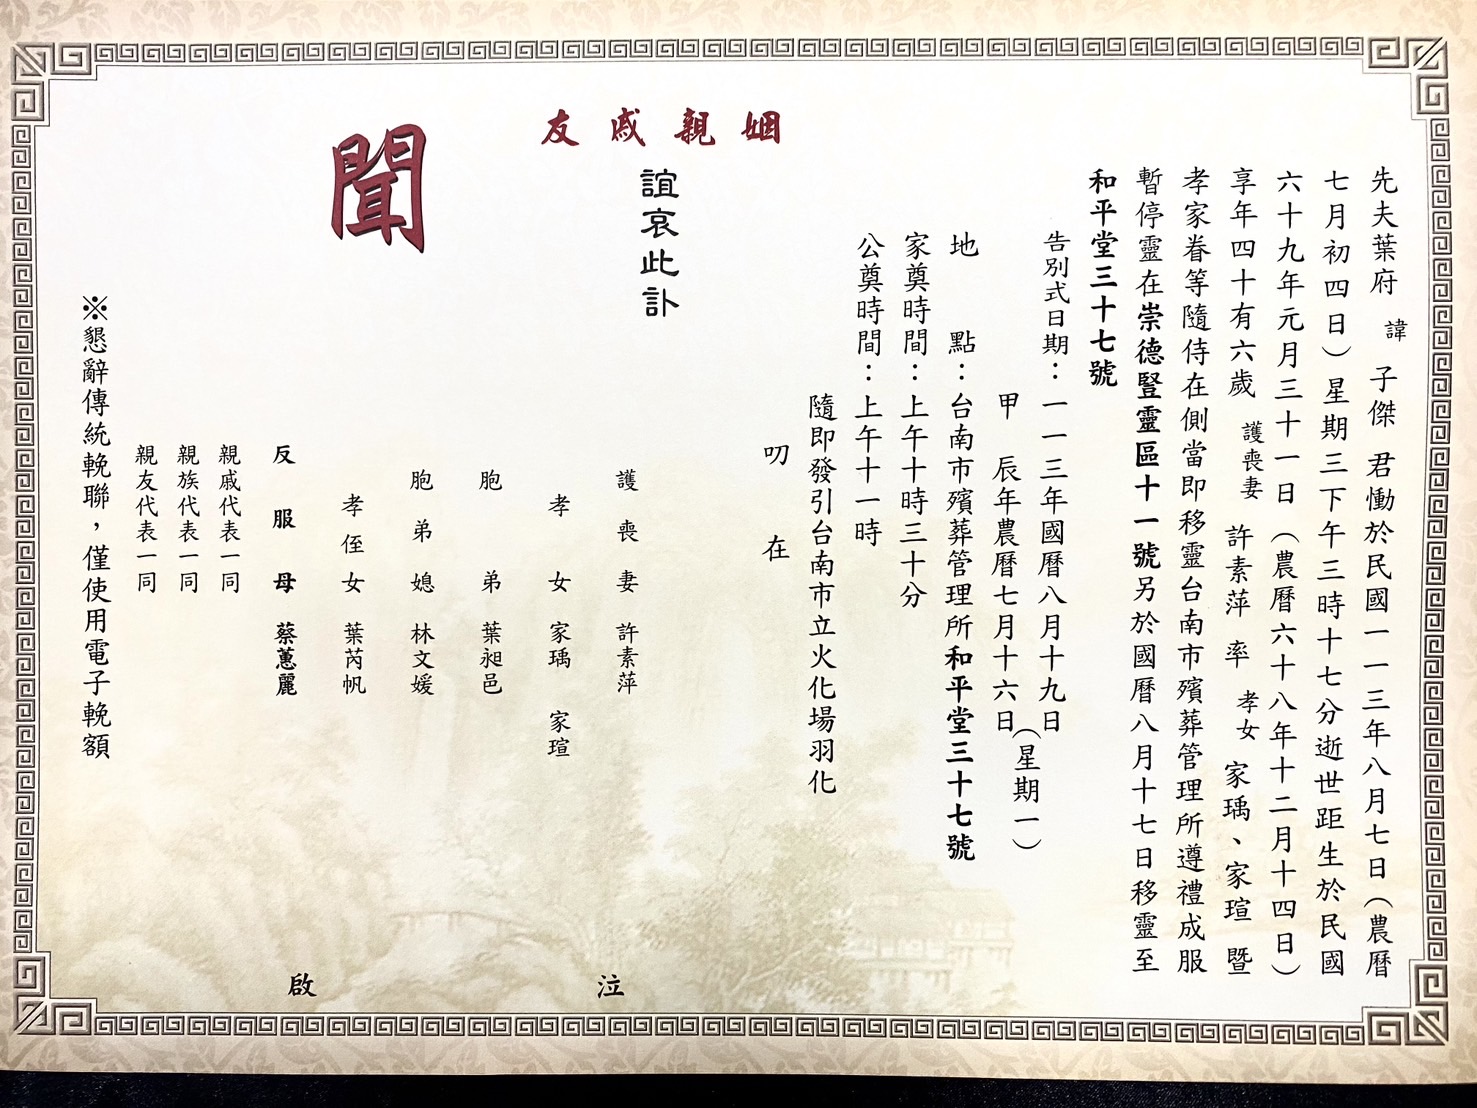 先夫葉府 諱 子傑 君慟於民國一一三年八月七日（農曆
七月初四日）星期三下午三時十七分逝世距生於民國
六十九年元月三十一日（農曆六十八年十二月十四日）
享年四十有六歲 護喪妻 許素萍 率 孝女 家瑀、家瑄 暨
孝家眷等隨侍在側當即移靈台南市殯葬管理所遵禮成服
暫停靈在崇德豎靈區十一號另於國曆八月十七日移靈至
和平堂三十七號
告別式日期：一一三年國曆八月十九日
甲 辰年農曆七月十六日（星期一）
地 點：台南市殯葬管理所和平堂三十七號
家奠時間：上午十時三十分
公奠時間：上午十一時
隨即發引台南市立火化場羽化
叨 在
姻親戚友
誼哀此訃
聞
護喪妻 許素萍
孝女 家瑀 家瑄
胞弟 葉昶邑
胞弟媳 林文媛
孝侄女 葉芮帆
反服母 蔡蕙麗
親戚代表一同
親族代表一同
親友代表一同
泣
啟
※懇辭傳統輓聯，僅使用電子輓額